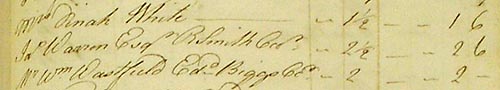 Mrs Dinah White — " 1/2 — " — 1 6
Jas Warren Esqr R. Smith Ccr. " 2 1/2 — " — 2 6
Mr Wm Wastfield Edd Biggs Ccr " 2 — " — 2 –